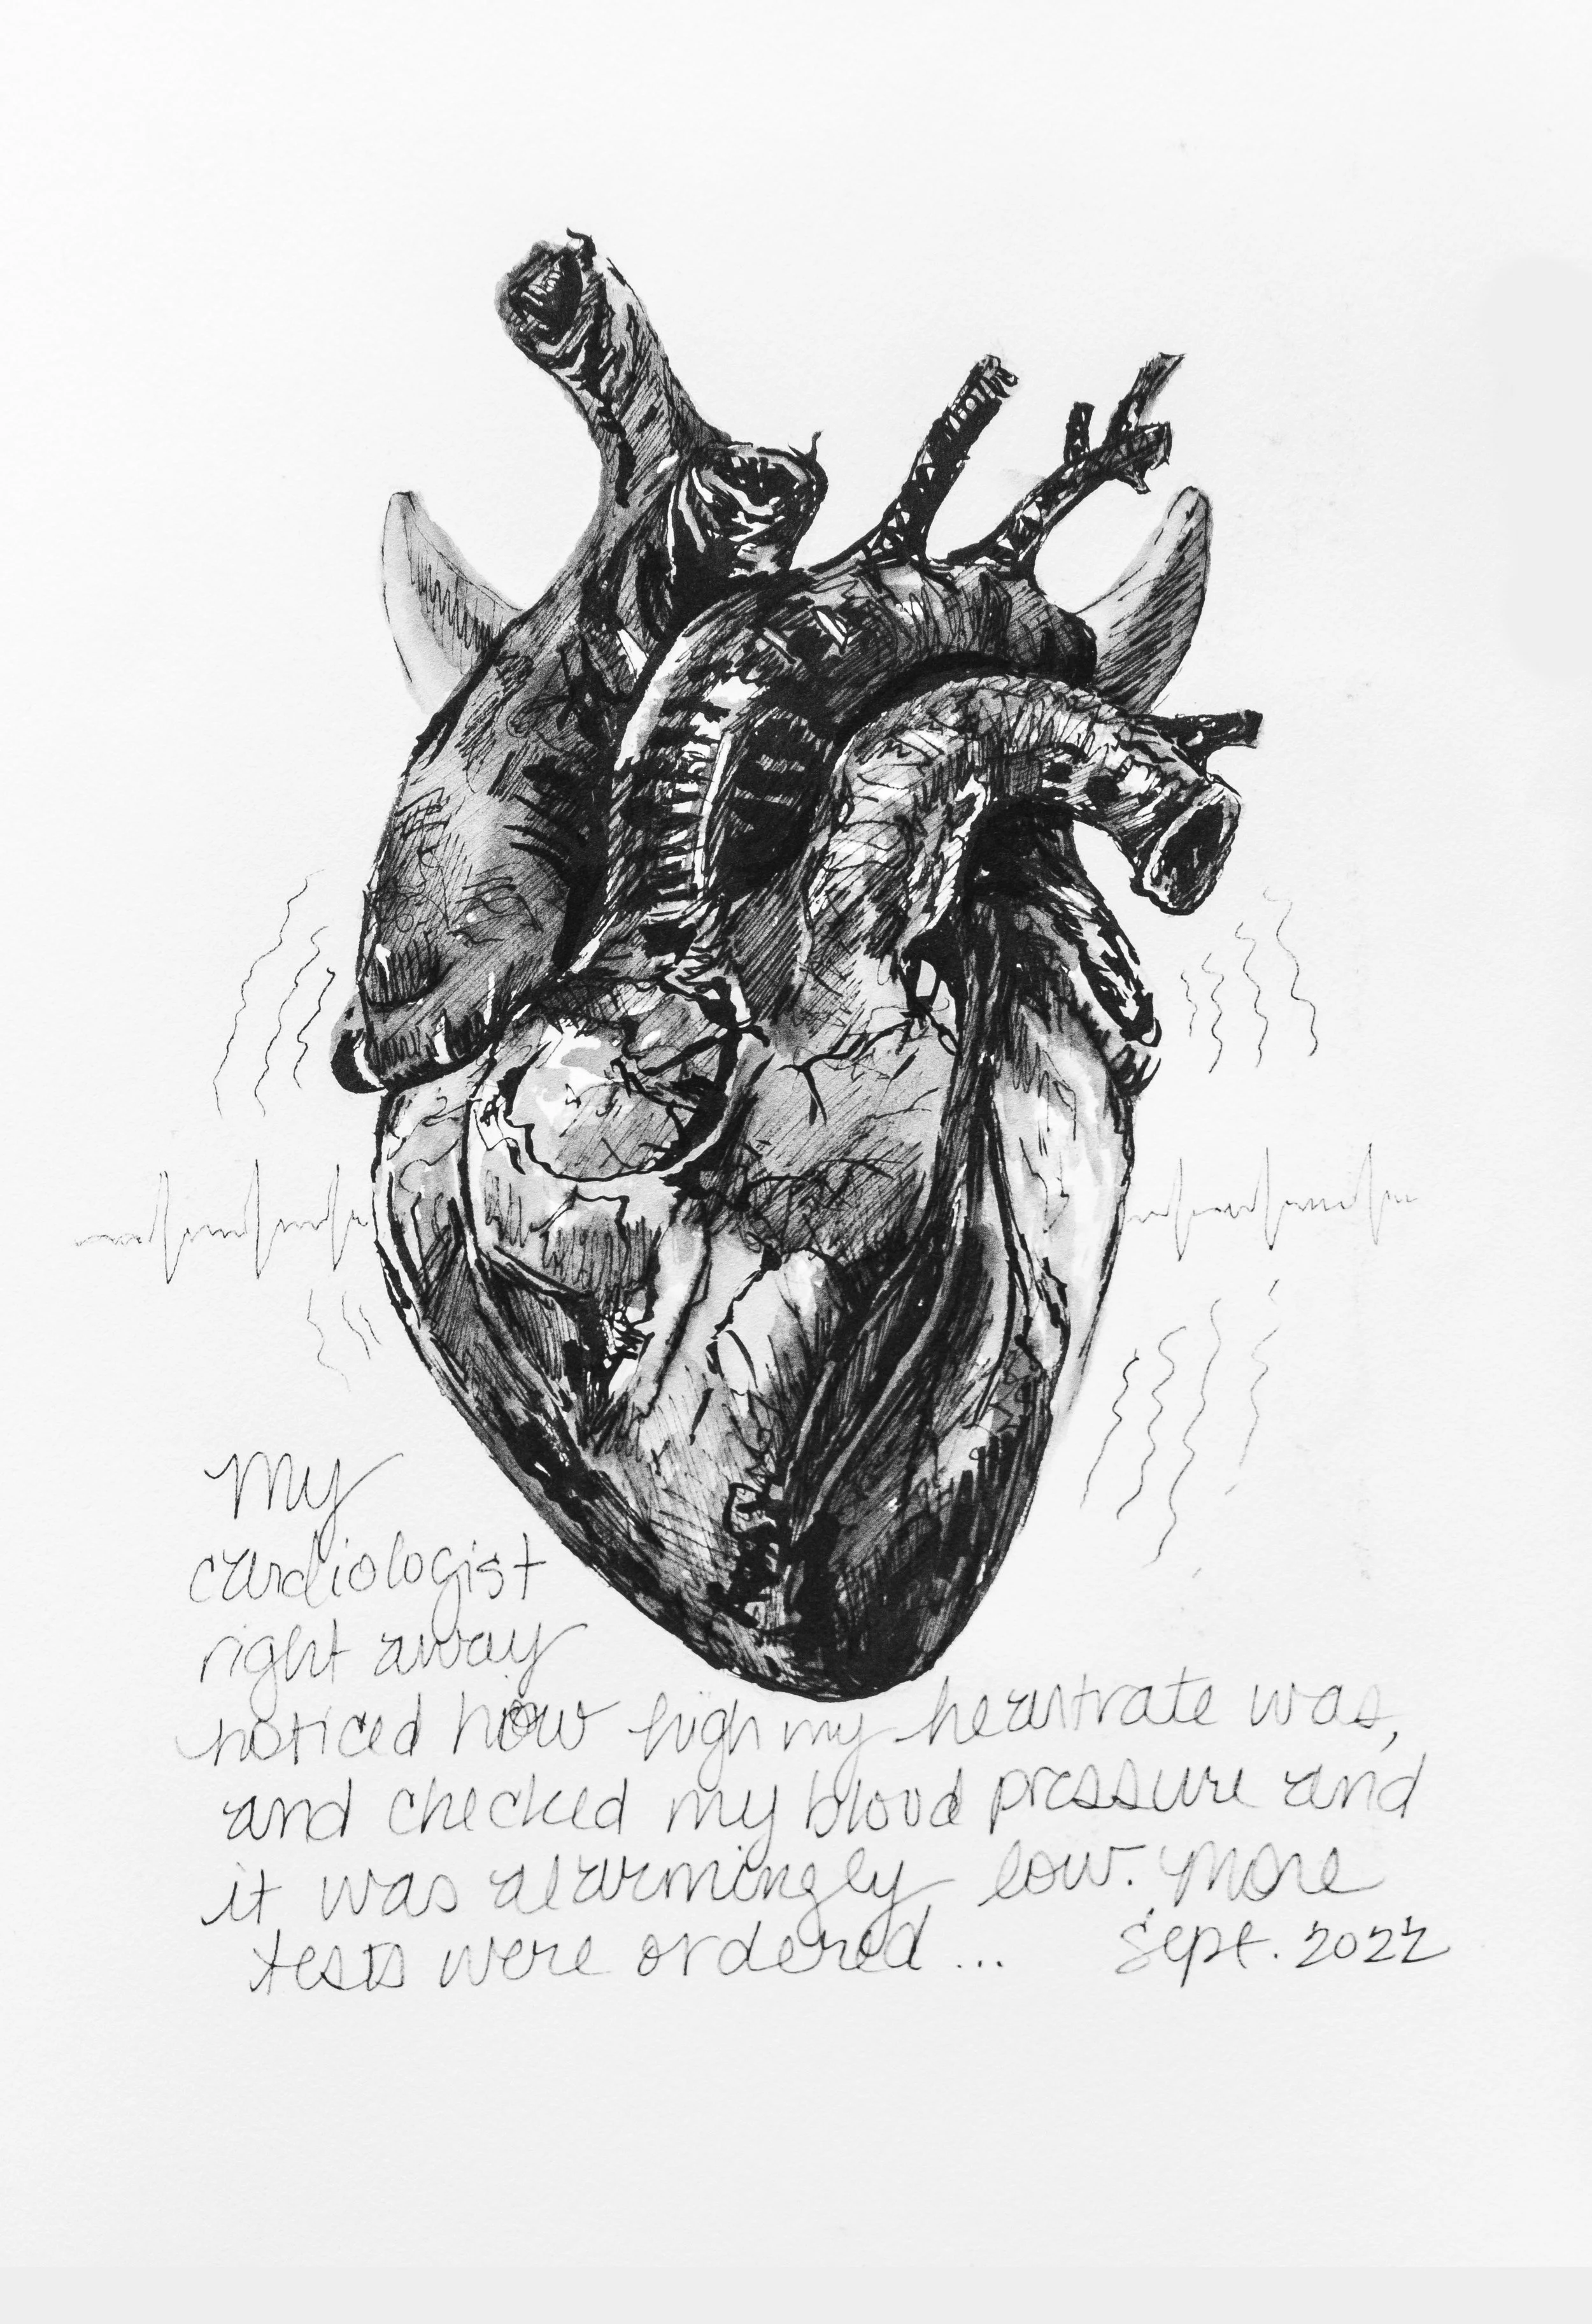 My
cardiologist
right away
noticed how high my heartrate was,
and checked my blood pressure and
it was alarmingly low. More
tests were ordered... Sept. 2022